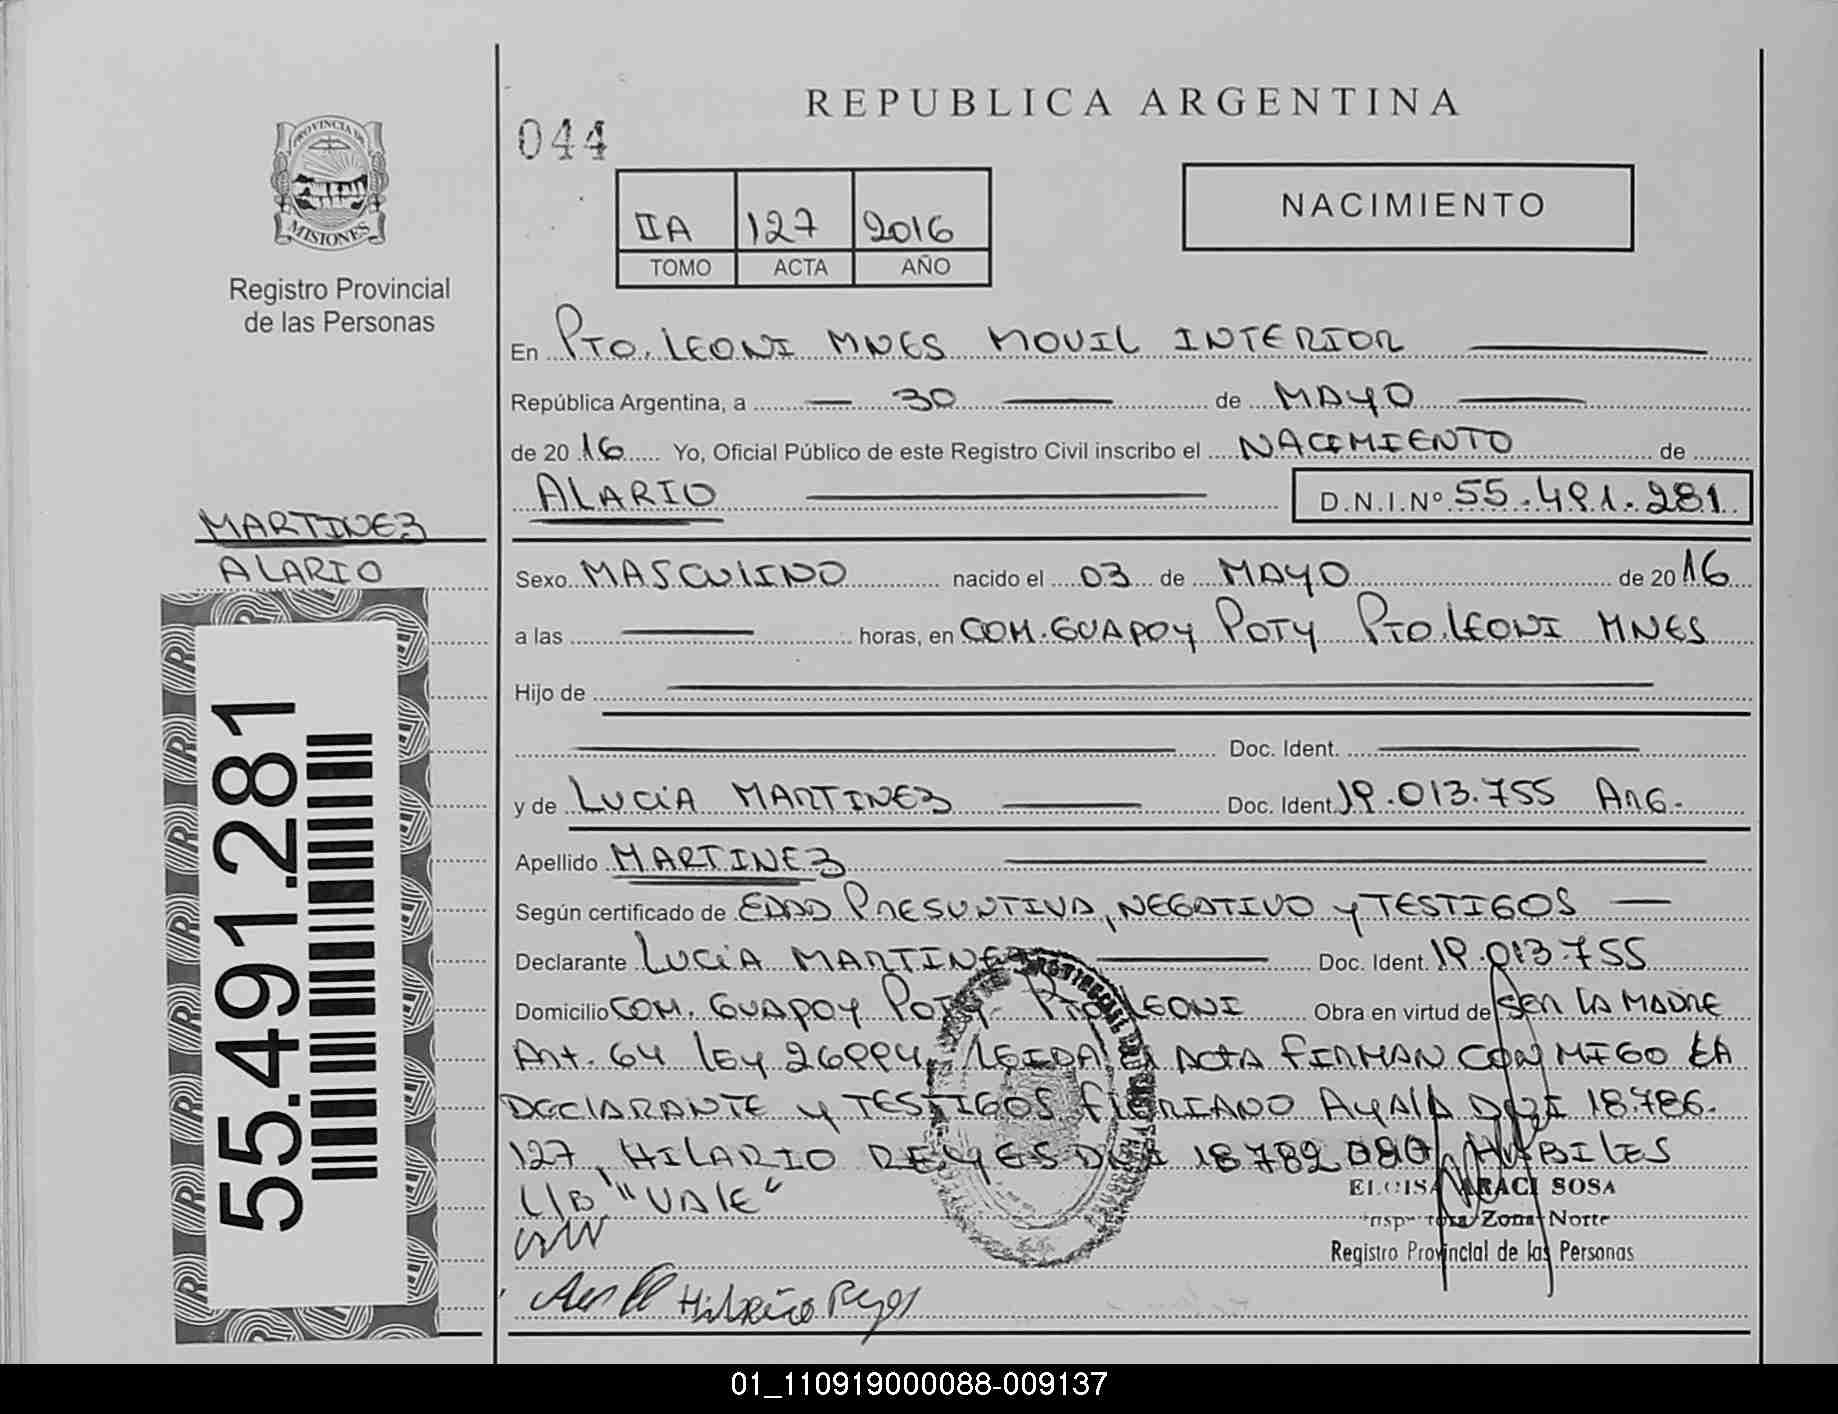 REPUBLICA ARGENTINA
044
NACIMIENTO
IIA 127 2016
TOMO ACTA AÑO
PROVINCIA DE
MISIONES
Registro Provincial
de las Personas
En PTO. LEONI MNES MOVIL INTERIOR
República Argentina, a 30 de MAYO
de 2016 Yo, Oficial Público de este Registro Civil inscribo el NACIMIENTO de
ALARIO D.N.I.Nº 55.491.281
MARTINEZ
ALARIO
Sexo MASCULINO nacido el 03 de MAYO de 2016
a las horas, en COM. GUAPOY POTY PTO. LEONI MNES
Hijo de
Doc. Ident.
y de LUCIA MARTINEZ Doc. Ident. 19.013.755 ARG.
Apellido MARTINEZ
Según certificado de EDAD PRESUNTIVA, NEGATIVO Y TESTIGOS
Declarante LUCIA MARTINEZ Doc. Ident. 19.013.755
Domicilio COM. GUAPOY POTY PTO LEONI Obra en virtud de SER LA MADRE
ART. 64 LEY 26994, LEIDA EL ACTA FIRMAN CONMIGO LA
DECLARANTE Y TESTIGOS FLORIANO AYALA DNI 18.786.
127, HILARIO REYES DNI 18782 080 HABILES
L/B "VALE"
ELOISA ARACI SOSA
Zona Norte
Registro Provincial de las Personas
Hilario Reyes
55.491.281
01_110919000088-009137